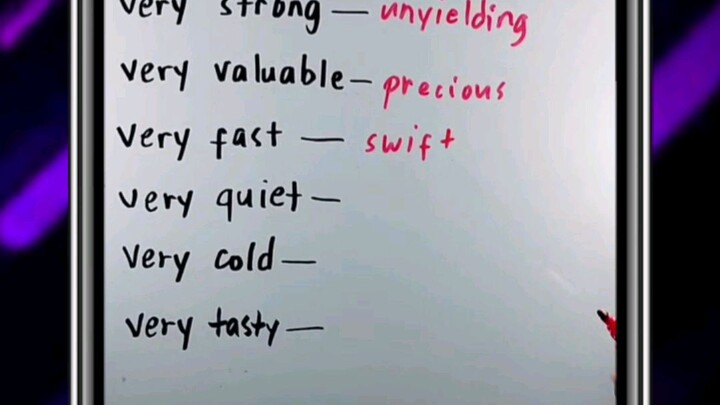 very strong — unyielding
very valuable — precious
very fast — swift
very quiet —
very cold —
very tasty —